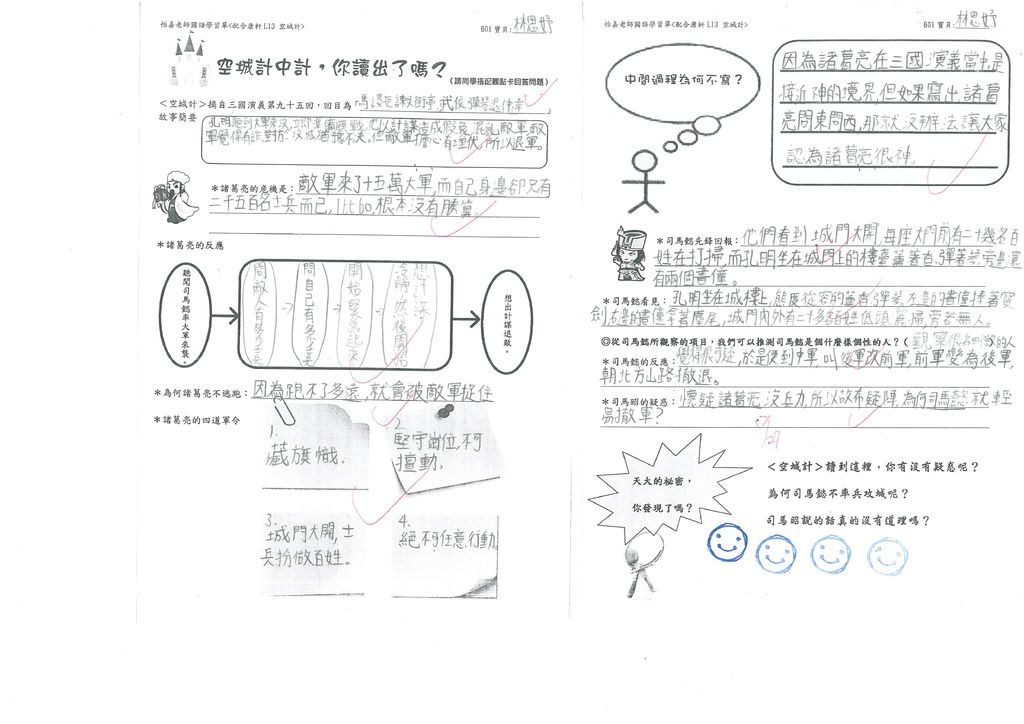 怡嘉老師國語學習單<配合康軒 L13 空城計>
601 寶貝:林思妤
空城計中計,你讀出了嗎?
(請同學搭配觀點卡回答問題)
<空城計>摘自三國演義第九十五回,回目為 馬謖拒諫失街亭,武侯彈琴退仲達
故事簡要
孔明聽到大軍來攻,立即準備應戰,他以計謀造成假象,混亂敵軍,敵
軍覺得有詐,對於攻城猶豫不決,但敵軍擔心有埋伏,所以退軍。
*諸葛亮的危機是:敵軍來了十五萬大軍,而自己身邊卻只有
二千五百名士兵而已,1比60,根本沒有勝算。
*諸葛亮的反應
聽聞司馬懿率大軍來襲。
問敵人有多少士兵
問自己有多少士兵
開始緊張起來
想計謀
冷靜,然後周詳
想出計謀退敵。
*為何諸葛亮不逃跑:因為跑不了多遠,就會被敵軍捉住
*諸葛亮的四道軍令
1.
藏旗幟.
2.
堅守崗位,不可
擅動。
3.
城門大開,士
兵扮做百姓。
4.
絕不可任意行動。
怡嘉老師國語學習單<配合康軒 L13 空城計>
601 寶貝:林思妤
中間過程為何不寫?
因為諸葛亮在三國演義當中是
接近神的境界,但如果寫出諸葛
亮問東問西,那就沒辦法讓大家
認為諸葛亮很神。
*司馬懿先鋒回報:他們看到城門大開,每座大門前有二十幾名百
姓在打掃,而孔明坐在城門上的樓臺,蓋著台,彈著琴,旁邊還
有兩個書僮。
*司馬懿看見:孔明坐在城樓上,態度從容的笑著彈琴,左邊的書僮捧著寶
劍,右邊的書僮拿著麈尾,城門內外有二十多名百姓低頭灑掃,旁若無人。
◎從司馬懿所觀察的項目,我們可以推測司馬懿是個什麼樣個性的人?(觀察很細微的人
*司馬懿的反應:覺得很可疑,於是便到中軍,叫後軍改前軍,前軍變為後軍,
朝北方山路撤退。
*司馬昭的疑惑:懷疑諸葛亮沒兵力,所以故布疑陣,為何司馬懿就輕
易撤軍?
5/27
天大的秘密,
你發現了嗎?
<空城計>讀到這裡,你有沒有疑惑呢?
為何司馬懿不率兵攻城呢?
司馬昭說的話真的沒有道理嗎?